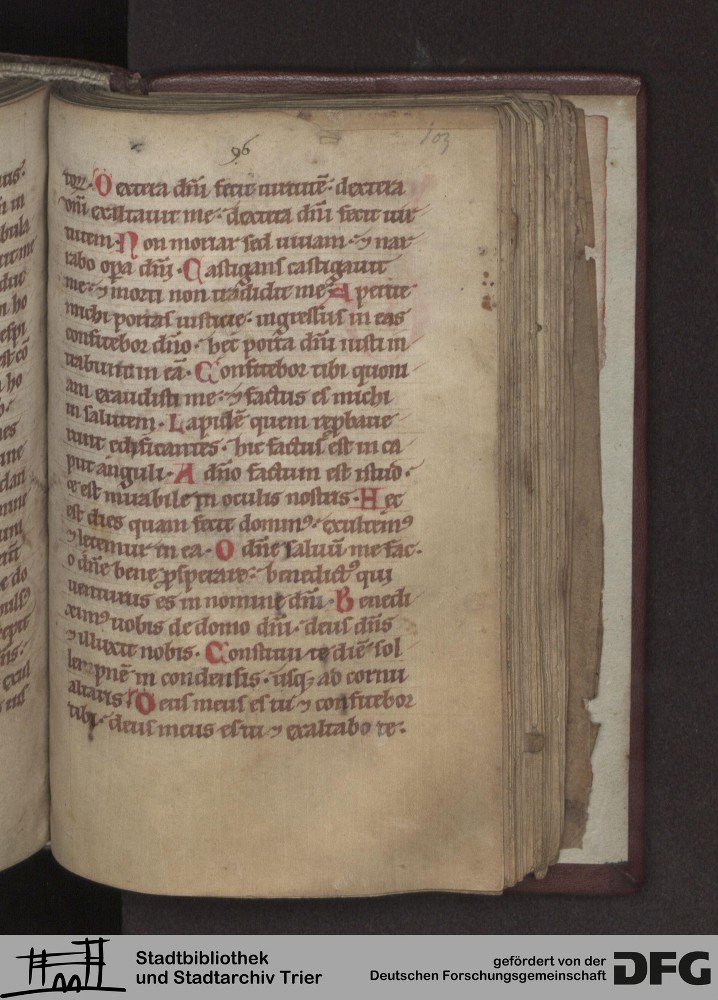 96
103
toꝝ· Dextera dn̄i fecit uirtutē· dextera
dn̄i exaltauit me· dextera dn̄i fecit uir
tutem Non moriar sed uiuam· ⁊ nar
rabo opa dn̄i· Castigans castigauit
me· ⁊ morti non tradidit me Aperite
michi portas iusticie· ingressus in eas
confitebor dn̄o· hec porta dn̄i iusti in
trabunt in eā· Confitebor tibi quoni
am exaudisti me· ⁊ factus es michi
in salutem· Lapidē quem repbaue
runt edificantes· hic factus est in ca
put anguli· A dn̄o factum est istud·
⁊ est mirabile in oculis nostris· Hec
est dies quam fecit dominꝰ· exultemꝰ
⁊ letemur in ea· O dn̄e saluū me fac·
o dn̄e bene ꝓsperare· benedictꝰ qui
uenturus es in nomine dn̄i· Benedi
ximꝰ uobis de domo dn̄i· deus dn̄s
⁊ illuxit nobis· Constitui te diē sol
lempnē in condensis· usqꝫ ad cornu
altaris· Deus meus es tu ⁊ confitebor
tibi· deus meus es tu ⁊ exaltabo te·
Stadtbibliothek
und Stadtarchiv Trier
gefördert von der
Deutschen Forschungsgemeinschaft DFG